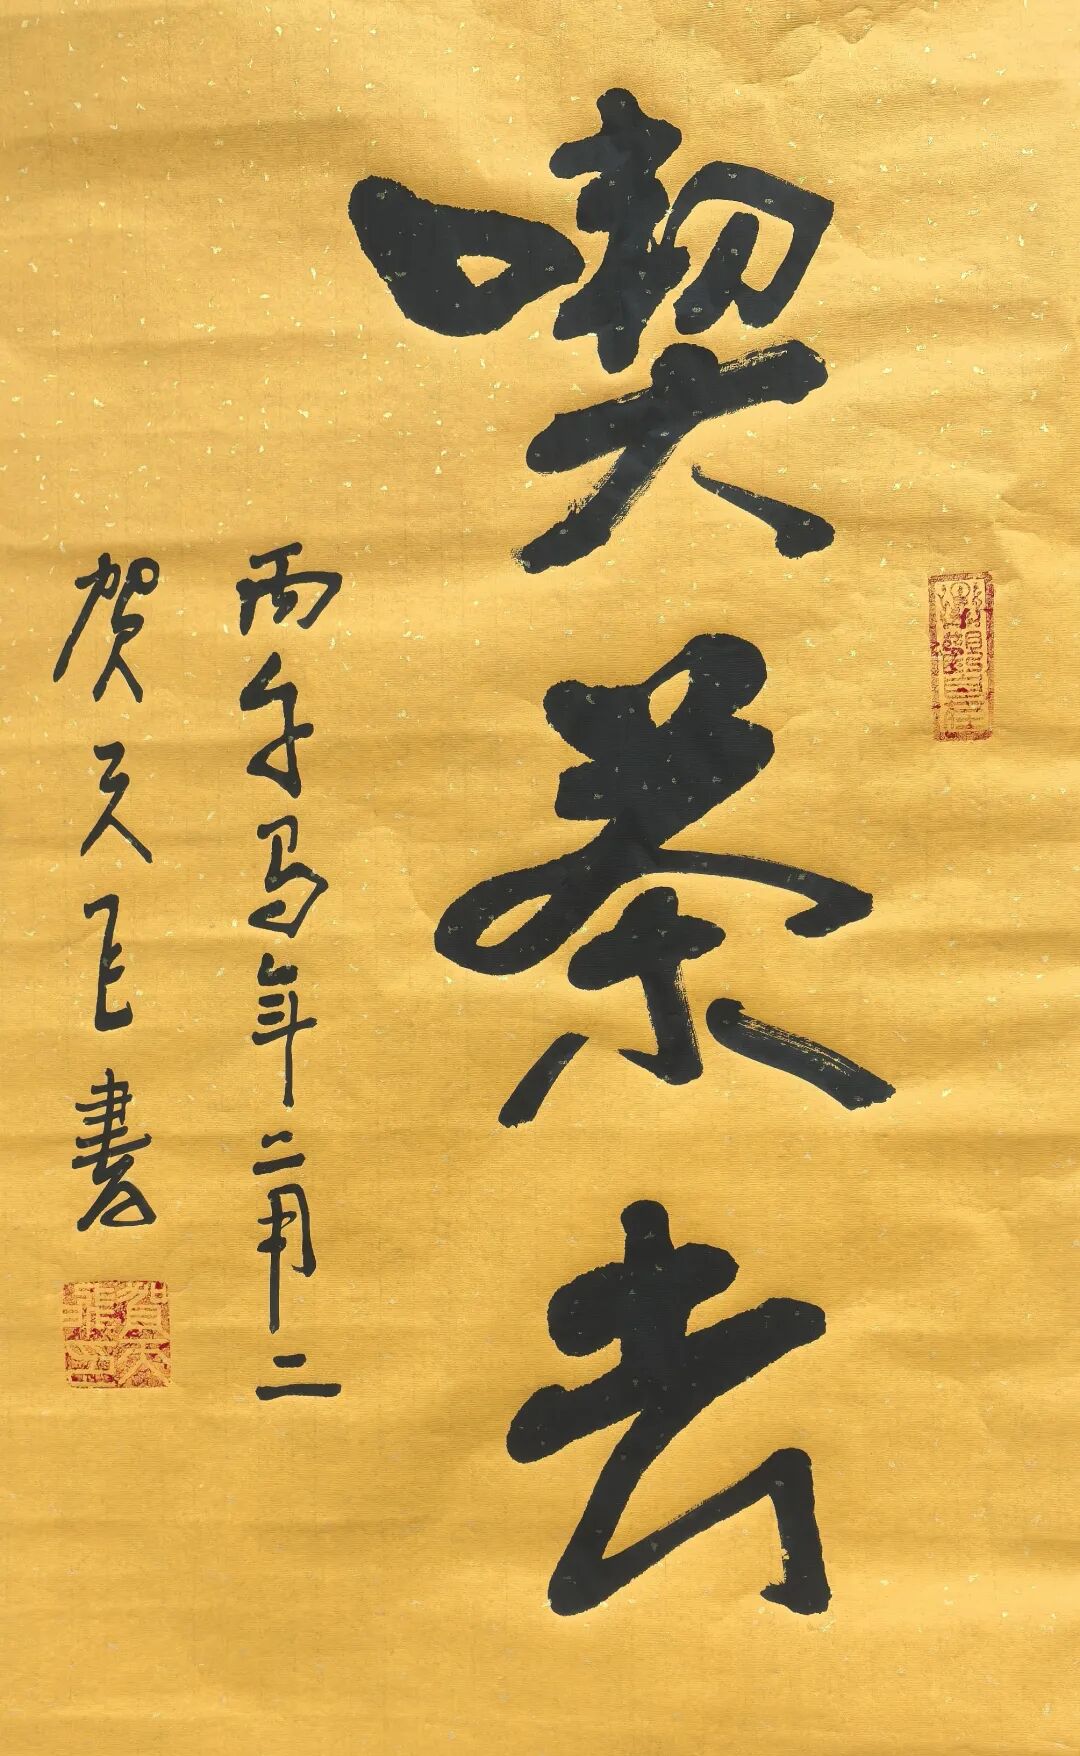 喫茶去
丙午馬年二月二
賀天飛書
賀天